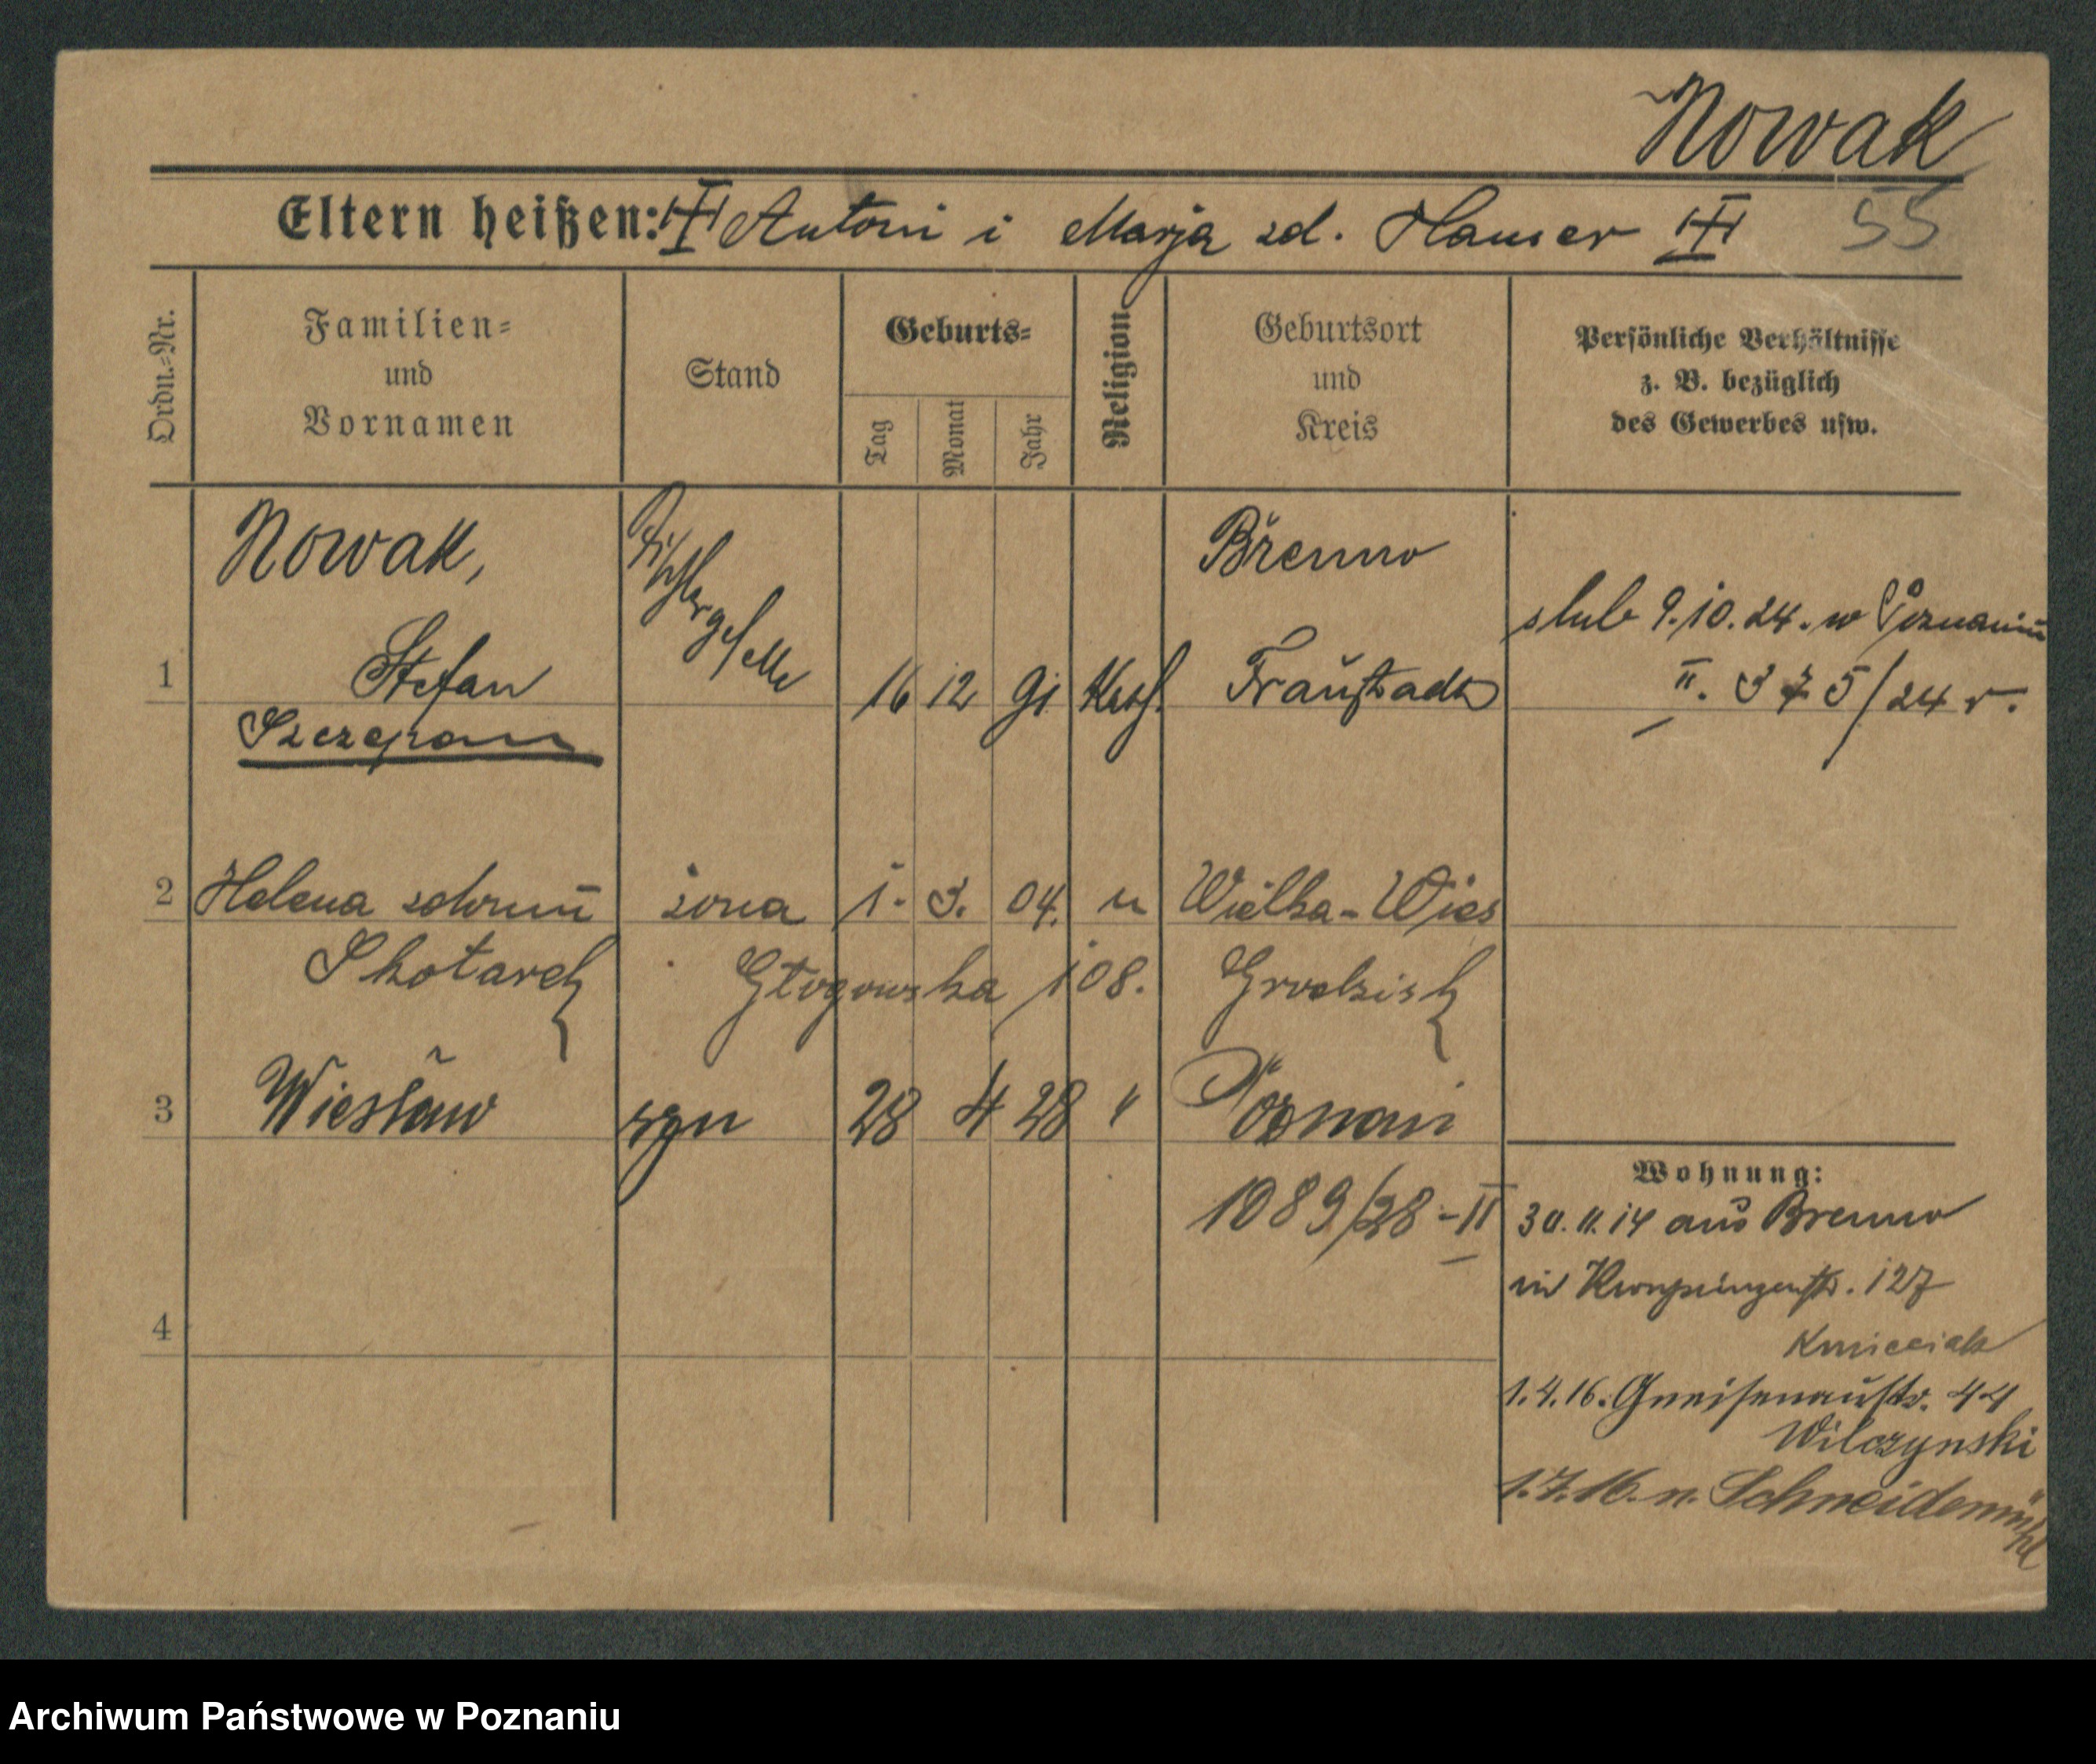 Nowak
Eltern heißen: Antoni i Marja zd. Hauser
55
Ordn.=Nr.
Familien=
und
Vornamen
Stand
Geburts=
Tag
Monat
Jahr
Religion
Geburtsort
und
Kreis
Persönliche Verhältnisse
z. B. bezüglich
des Gewerbes usw.
1
Nowak,
Stefan
Szczepan
Tischlergeselle
16 12 91 Kath.
Brenno
Fraustadt
slub 9.10.24. w Poznaniu
II. 375/24 r.
2
Helena
żona 1. 3. 04. "
Wielka-Wieś
Skotarek
Głogowska 108.
Grodzisk
3
Wiesław
syn 28 4 28 "
Poznań
1089/28-II
4
Wohnung:
30.11.14 aus Brenno
in Kronprinzenstr. 127
Kmieciak
1.4.16. Gneisenaustr. 44
Wilczynski
1.7.16. n. Schneidemühl
Archiwum Państwowe w Poznaniu